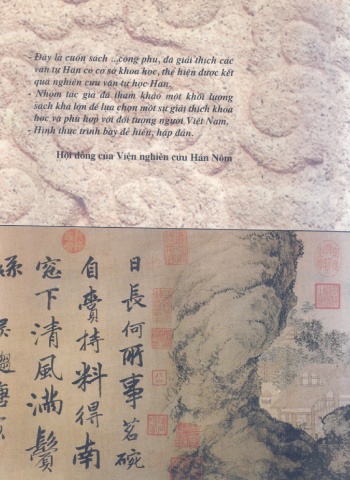 - Đây là cuốn sách ...công phu, đã giải thích các
văn tự Hán có cơ sở khoa học, thể hiện được kết
quả nghiên cứu văn tự học Hán,
- Nhóm tác giả đã tham khảo một khối lượng
sách khá lớn để lựa chọn một sự giải thích khoa
học và phù hợp với đối tượng người Việt Nam,
- Hình thức trình bày dễ hiểu, hấp dẫn.
Hội đồng của Viện nghiên cứu Hán Nôm
日長何所事茗碗
自賫持料得南
窓下清風滿鬢
吳趨唐